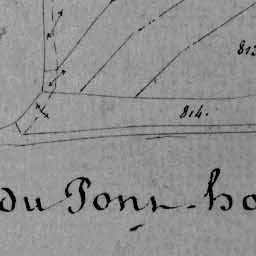 814.
du Pont-ho